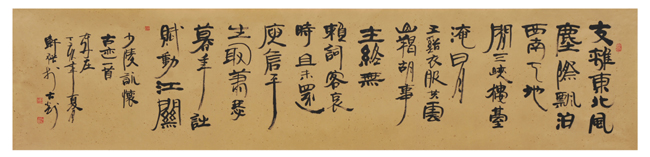 支離東北風
塵際飄泊
西南天地
間三峽樓臺
淹日月
五谿衣服共雲
山羯胡事
主終無
賴詞客哀
時且未還
庾信平
生最蕭瑟
暮年詩
賦動江關
少陵詠懷
古迹一首